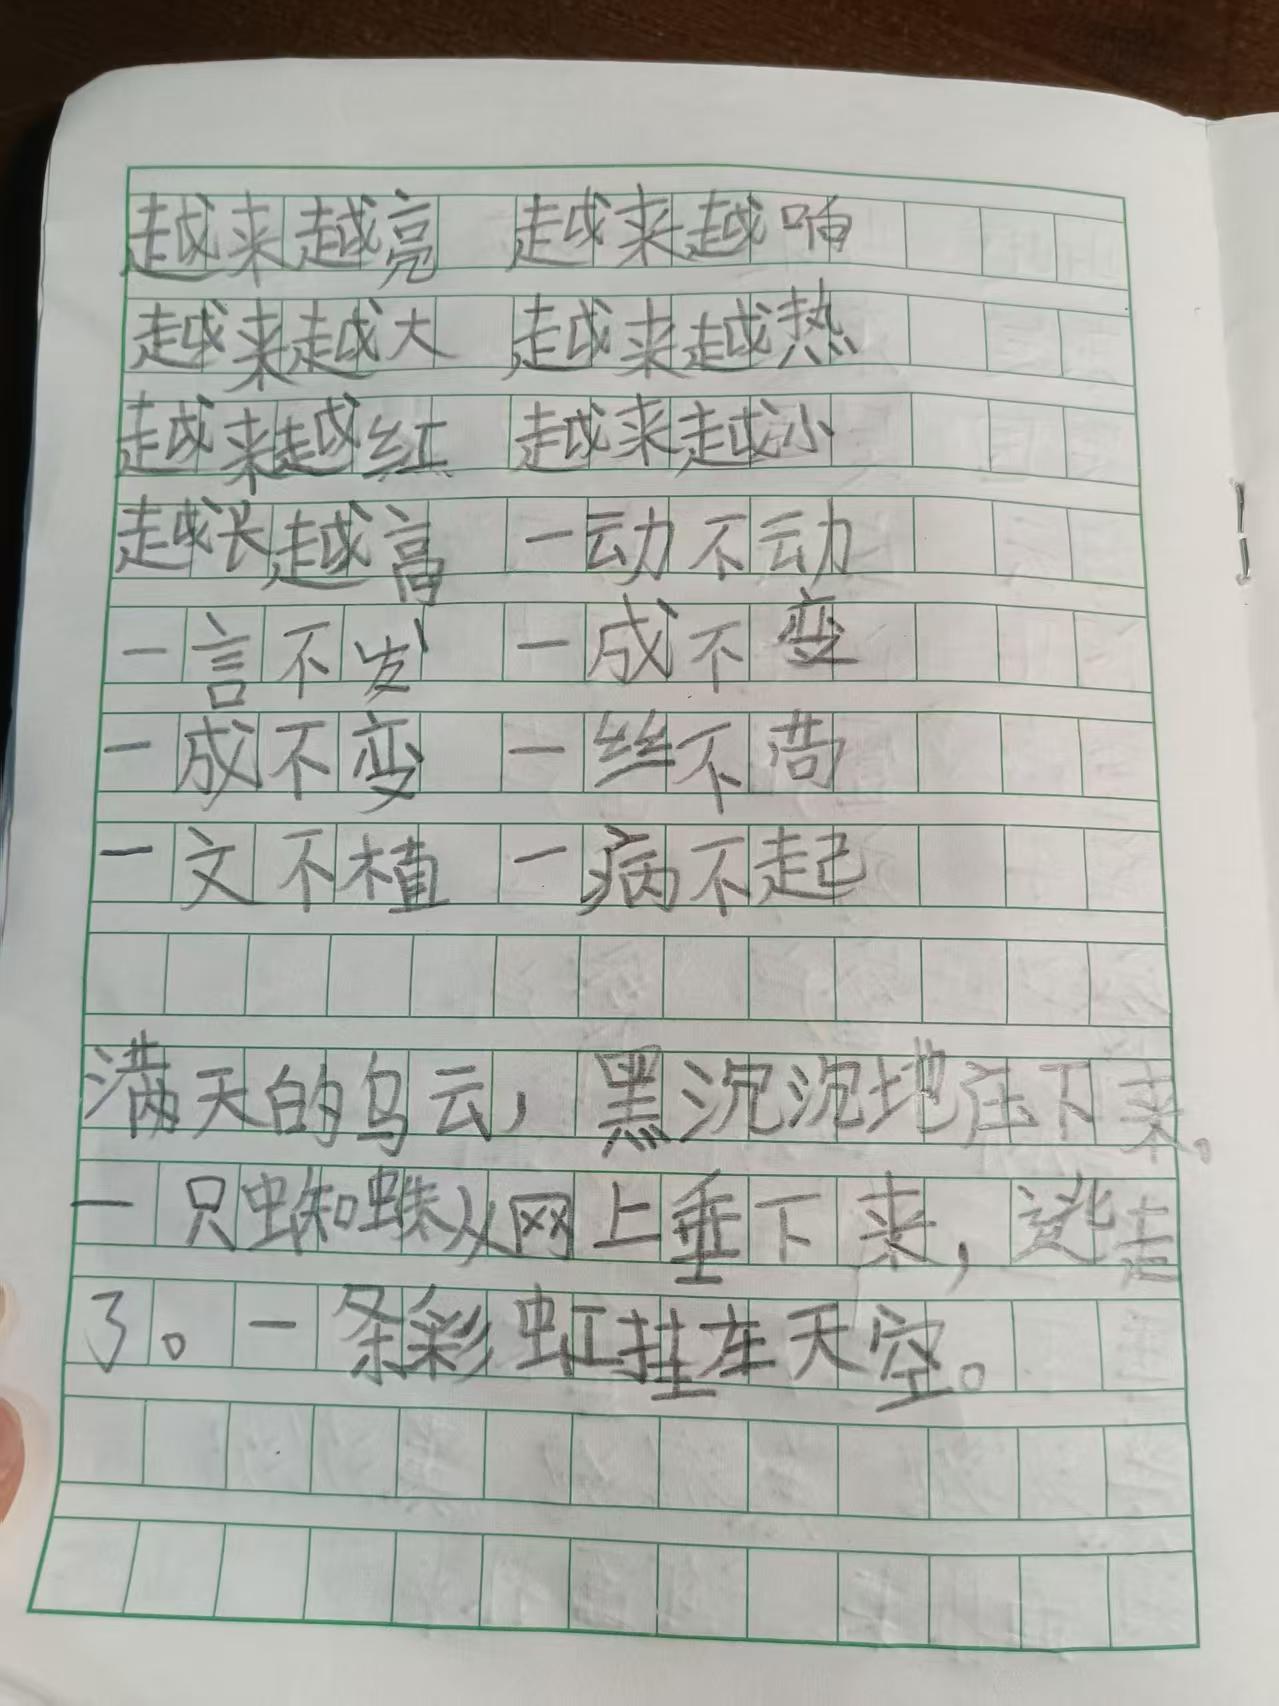 越来越亮 越来越响
越来越大 越来越热
越来越红 越来越小
越长越高 一动不动
一言不发 一成不变
一成不变 一丝不苟
一文不植 一病不起
满天的乌云，黑沉沉地压下来。
一只蜘蛛从网上垂下来，逃走
了。一条彩虹挂在天空。